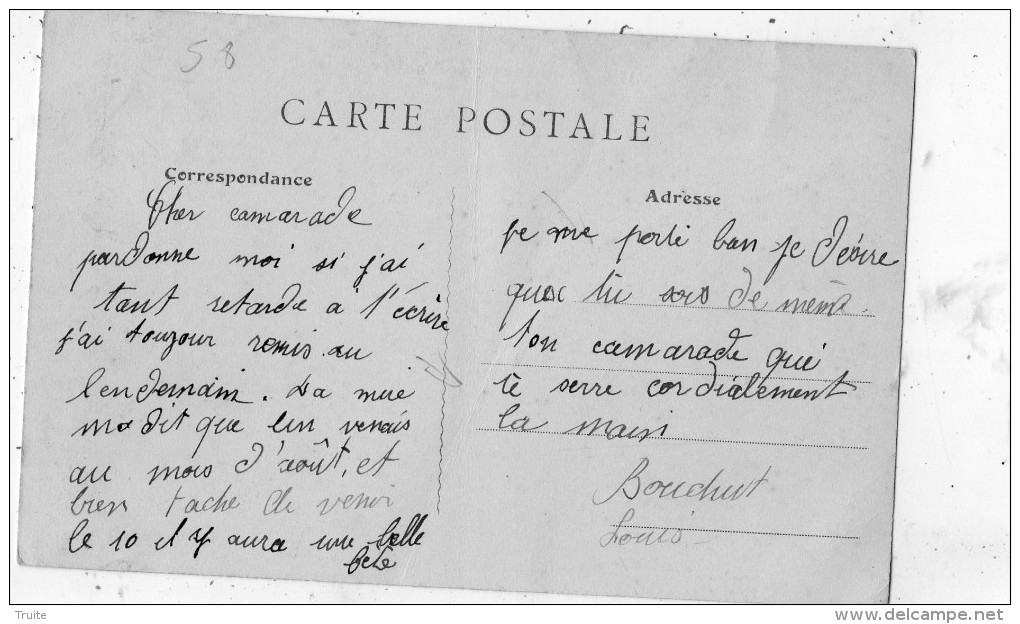 58
CARTE POSTALE
Correspondance
Cher camarade
pardonne moi si j'ai
tant retarde a t'écrire
j'ai toujour remis au
lendemain. Ta mere
ma dit que tu venais
au mois d'août, et
bien tache de venir
le 10 il y aura une belle
fete
Adresse
je me porte bien je désire
que tu sois de même.
ton camarade qui
te serre cordialement
la main
Bouchut
Louis
Truite
www.delcampe.net